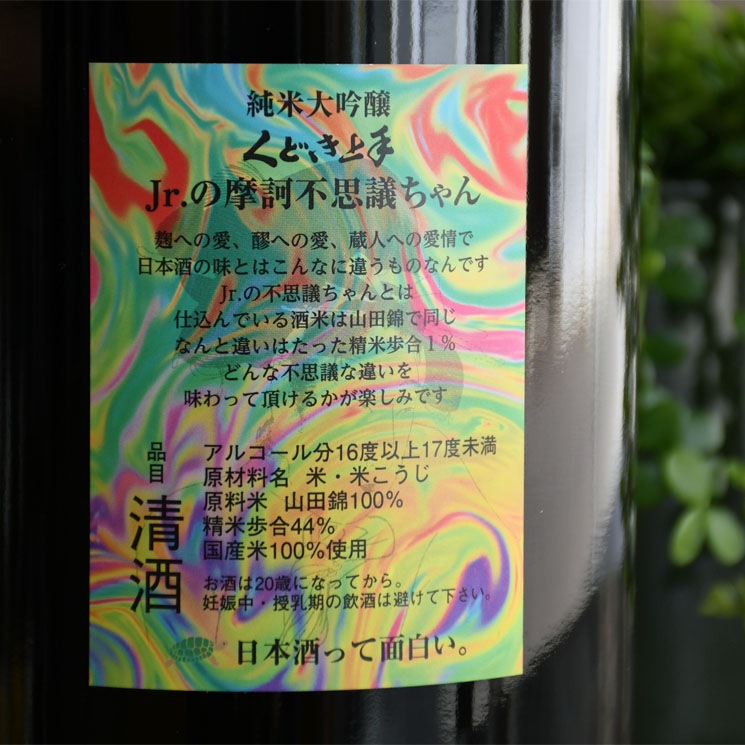 純米大吟醸
くどき上手
Jr.の摩訶不思議ちゃん
麹への愛、醪への愛、蔵人への愛情で
日本酒の味とはこんなに違うものなんです
Jr.の不思議ちゃんとは
仕込んでいる酒米は山田錦で同じ
なんと違いはたった精米歩合1%
どんな不思議な違いを
味わって頂けるかが楽しみです
品目
清酒
アルコール分16度以上17度未満
原材料名 米・米こうじ
原料米 山田錦100%
精米歩合44%
国産米100%使用
お酒は20歳になってから。
妊娠中・授乳期の飲酒は避けて下さい。
日本酒って面白い。